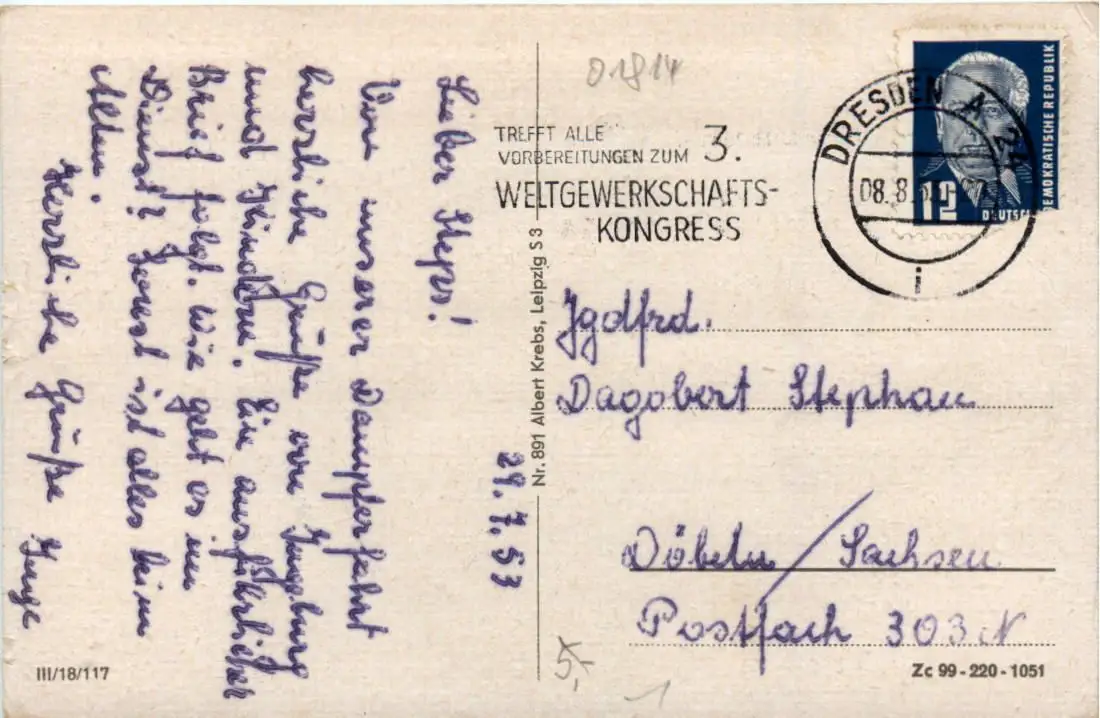 Lieber Steps!
Von unserer Dampferfahrt
herzliche Grüße von Ingeburg
und Günther. Ein ausführlicher
Brief folgt. Wie geht es im
Dienst? Sonst ist alles beim
Alten.
Herzliche Grüße Inge
29.7.53
III/18/117
Nr. 891 Albert Krebs, Leipzig S 3
01814
TREFFT ALLE
VORBEREITUNGEN ZUM 3.
WELTGEWERKSCHAFTS-
KONGRESS
DRESDEN A 24
08.8.53
i
12
DEUTSCHE DEMOKRATISCHE REPUBLIK
Jgdfrd.
Dagobert Stephan
Döbeln / Sachsen
Postfach 303 N
5,-
1
Zc 99-220-1051